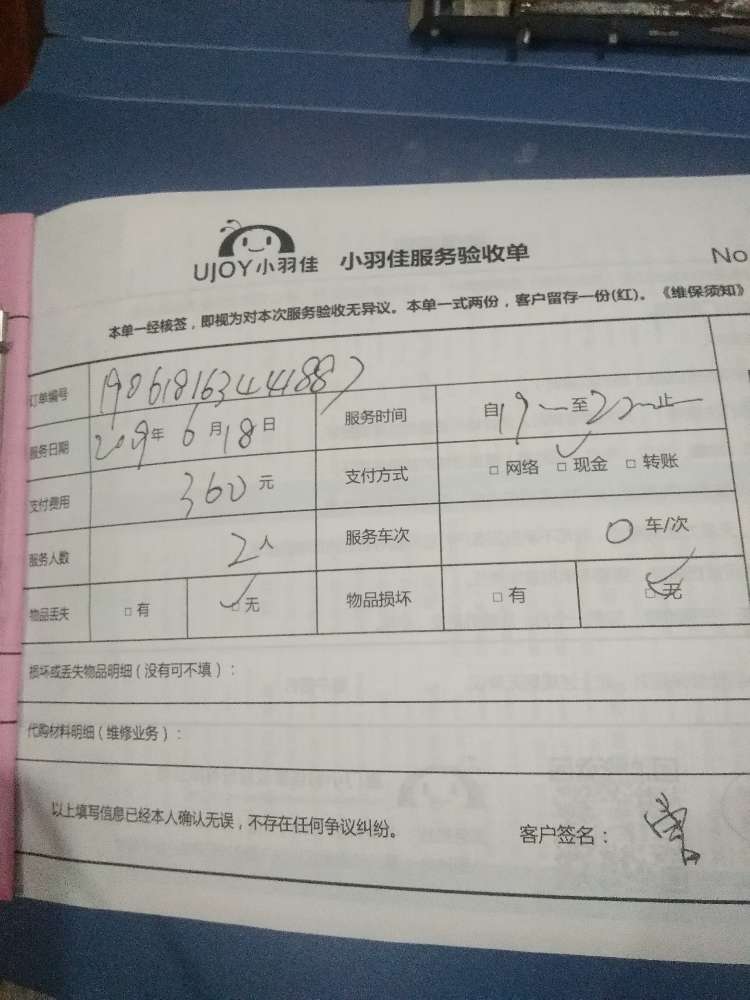 UJOY小羽佳 小羽佳服务验收单 No
本单一经核签，即视为对本次服务验收无异议。本单一式两份，客户留存一份(红)。《维保须知》
订单编号 190618163441887
服务日期 2019年6月18日 服务时间 自19一至22一止
支付费用 360元 支付方式 □网络 □现金 □转账
服务人数 2人 服务车次 0车/次
物品丢失 □有 □无 物品损坏 □有 □无
损坏或丢失物品明细（没有可不填）：
代购材料明细（维修业务）：
以上填写信息已经本人确认无误，不存在任何争议纠纷。 客户签名：